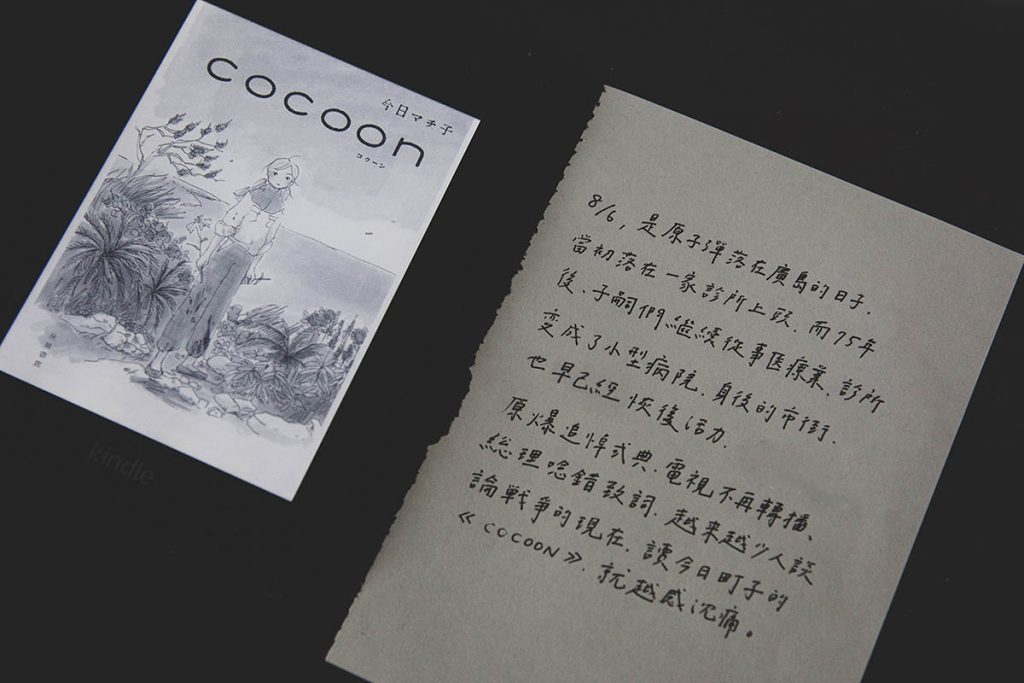 cocoon
今日マチ子
コクーン
秋田書店
kindle
8/6，是原子彈落在廣島的日子．
當初落在一家診所上頭．而75年
後、子嗣們繼續從事医療業、診所
變成了小型病院．身後的市街．
也早已經恢復活力．
原爆追悼式典．電視不再轉播、
総理唸錯致詞．越来越少人談
論戦爭的現在．讀今日町子的
《COCOON》．就越感沉痛。